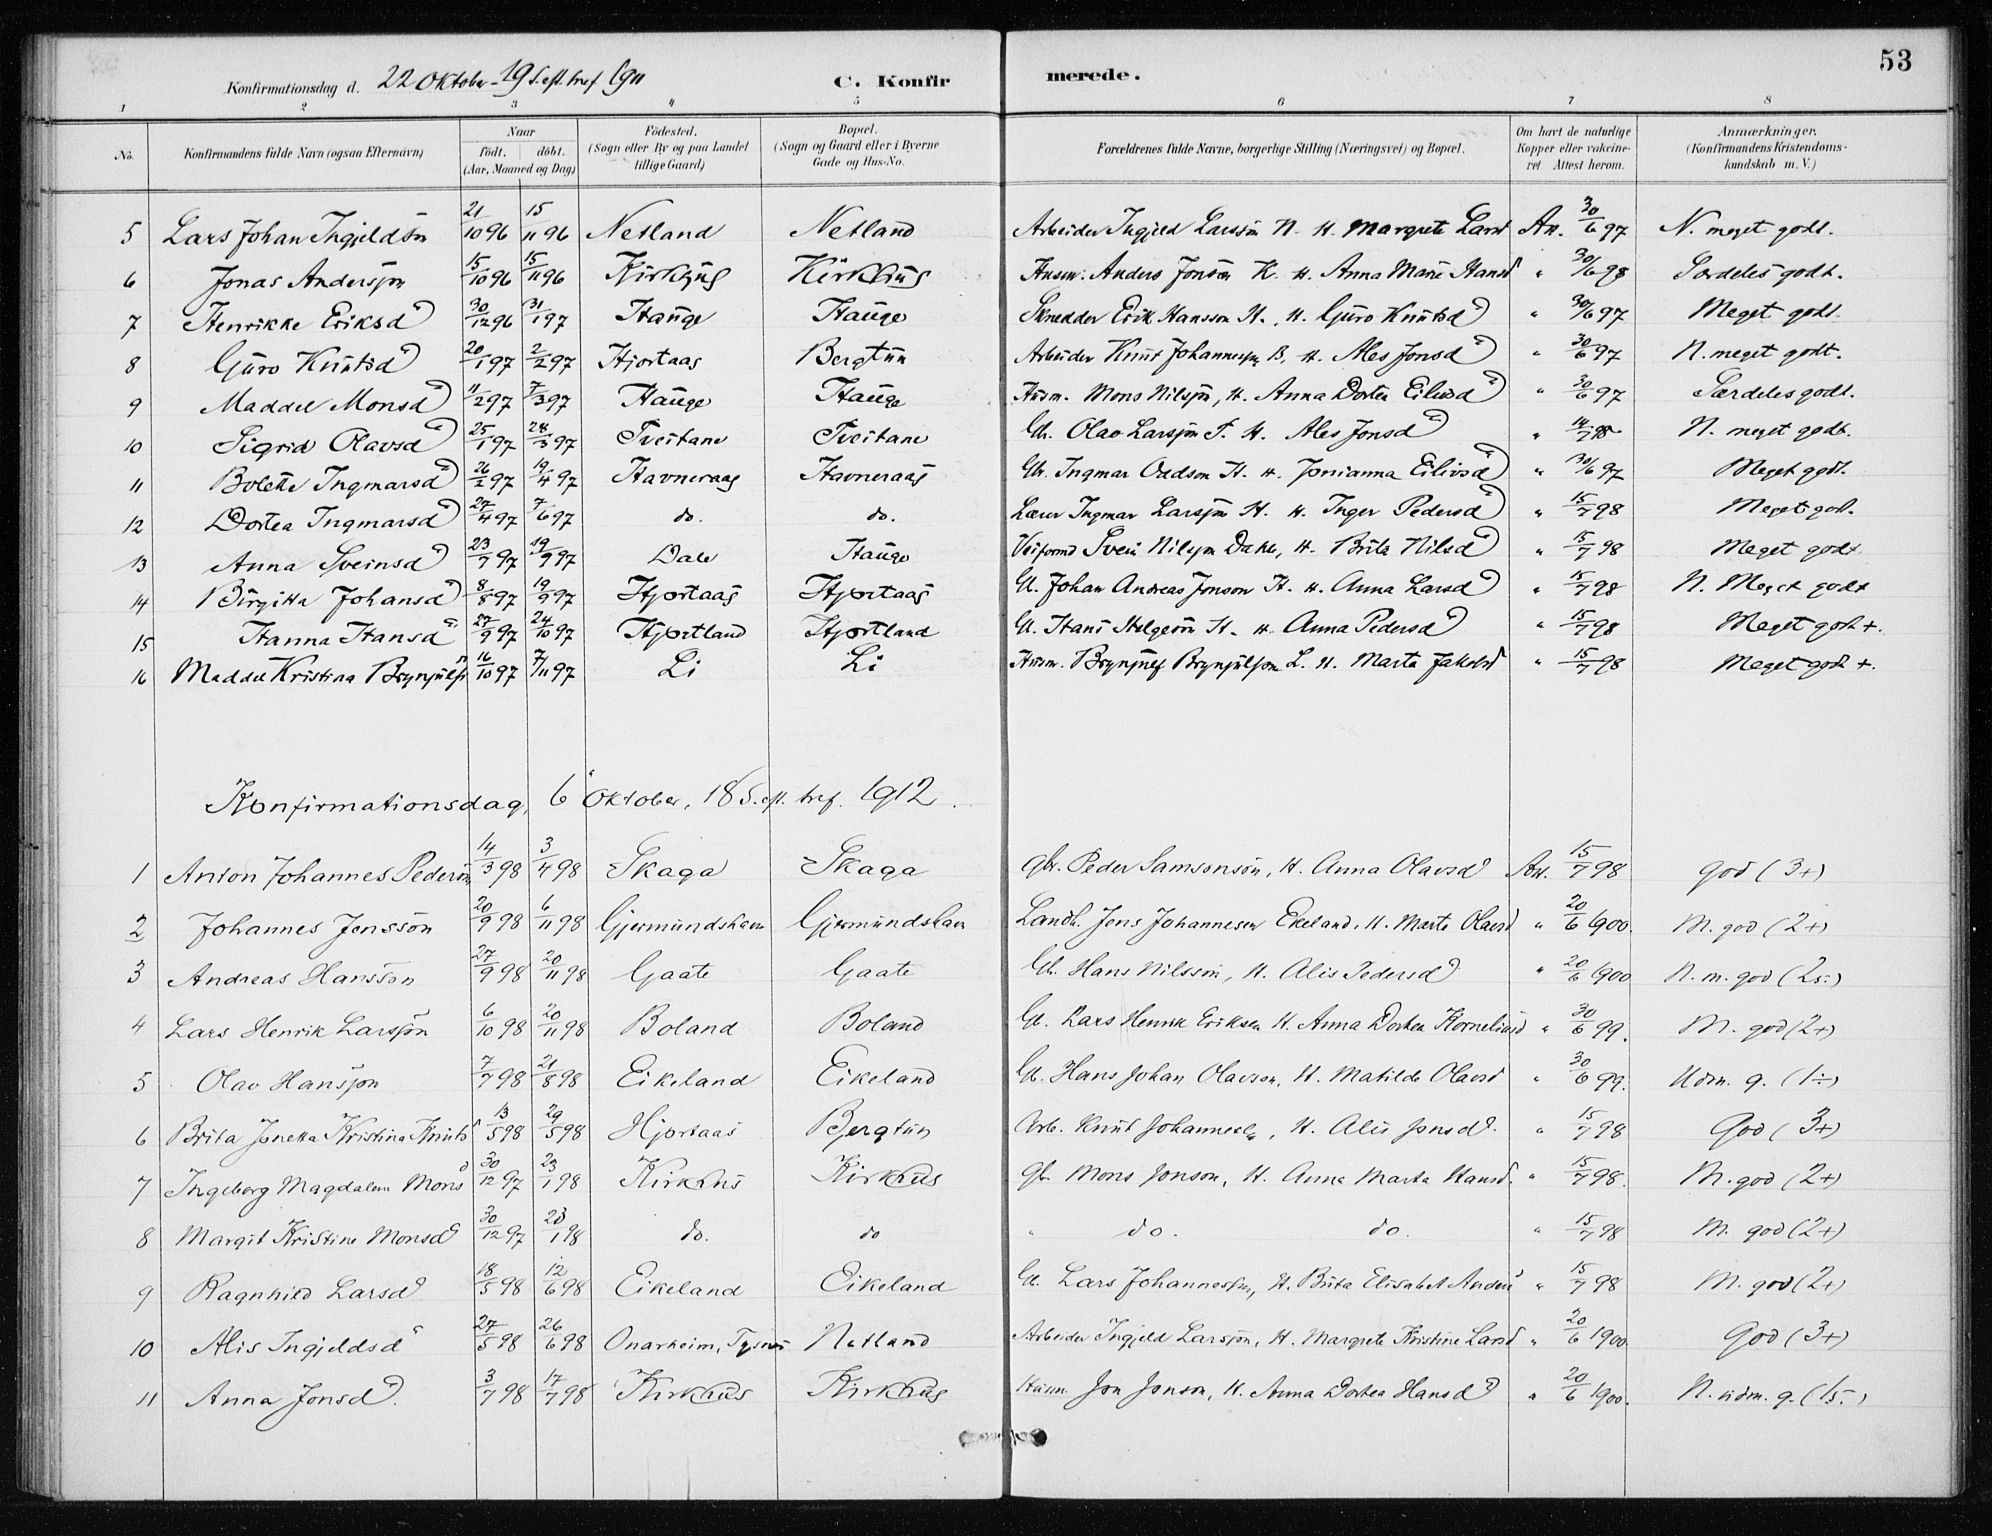 53
Konfirmationsdag d. 22 Oktober - 19 S. eft. tref. 1911 C. Konfirmerede.
1 2 3 4 5 6 7 8
No. Konfirmandens fulde Navn (ogsaa Efternavn) Naar Födt. döbt. (Aar, Maaned og Dag) Födested. (Sogn eller By og paa Landet tillige Gaard) Bopæl. (Sogn og Gaard eller i Byerne Gade og Hus-No. Forældrenes fulde Navne, borgerlige Stilling (Næringsvei) og Bopæl. Om havt de naturlige Kopper eller vakcineret. Attest herom. Anmærkninger. (Konfirmandens Kristendomskundskab m. V.)
5 Lars Johan Ingjeldsön 21/10 96 15/11 96 Netland Netland Arbeider Ingjeld Larssön N. H. Margrete Larsd An. 30/6 97 N. meget godt.
6 Jonas Andersson 15/10 96 15/11 96 Kirkhus Kirkhus Husm. Anders Jonsön K. H. Anna Marie Hansd " 30/6 98 Særdeles godt.
7 Henrikke Eriksd 30/12 96 31/1 97 Hauge Hauge Skredder Erik Hansson H. H. Guro Knutsd " 30/6 97 Meget godt.
8 Guro Knutsd 20/1 97 2/2 97 Hjortaas Bergtun Arbeider Knut Johannessön B, H. Ales Jonsd " 30/6 97 N. meget godt.
9 Maddel Monsd 11/2 97 7/3 97 Hauge Hauge Husm. Mons Nilssön, H. Anna Dortea Eilivsd " 30/6 97 Særdeles godt.
10 Sigrid Olavsd 25/1 97 28/3 97 Tveitane Tveitane Gb. Olav Larssön T. H. Ales Jonsd " 14/7 98 N. meget godt.
11 Bolette Ingmarsd 26/2 97 19/4 97 Havneraas Havneraas Gb. Ingmar Oddson H. H. Jonianna Eilivsd " 30/6 97 Meget godt.
12 Dortea Ingmarsd 27/4 97 7/6 97 do. do. Lærer Ingmar Larssön H. H. Inger Pedersd " 15/7 98 Meget godt.
13 Anna Sveinsd 23/7 97 19/9 97 Dale Hauge Veiformd Svein Nilsson Dahle, H. Brita Nilsd " 15/7 98 Meget godt
14 Birgitta Johansd 8/8 97 19/9 97 Hjortaas Hjortaas G. Johan Andreas Jonson H. H. Anna Larsd " 15/7 98 N. Meget godt
15 Hanna Hansd 27/9 97 24/10 97 Hjortland Hjortland G. Hans Helgesön H. H. Anna Pedersd " 15/7 98 Meget godt +.
16 Maddel Kristina Brynjulfsd 16/10 97 7/11 97 Li Li Husm. Brynjulf Brynjulfson L. H. Marta Jakobsd " 15/7 98 Meget godt +.
Konfirmationsdag, 6 Oktober, 18 S. eft. tref. 1912.
1 Anton Johannes Pedersön 14/3 98 3/4 98 Skaga Skaga Gbr. Peder Samsonsön, H. Anna Olavsd An. 15/7 98 God (3+)
2 Johannes Jensson 20/9 98 6/11 98 Gjermundshavn Gjermundshavn Landh. Jens Johannesen Ekeland, H. Marta Olavsd " 20/6 1900. M. god (2+)
3 Andreas Hansson 27/9 98 20/11 98 Gaate Gaate Gb. Hans Nilssön, H. Alis Pedersd " 20/6 1900 N. m. god (2÷)
4 Lars Henrik Larssön 6/10 98 20/11 98 Boland Boland G. Lars Henrik Eriksen H. Anna Dortea Korneliusd " 30/6 99. M. god (2+)
5 Olav Hansson 7/7 98 21/8 98 Eikeland Eikeland G. Hans Johan Olavson, H. Matilde Olavsd " 30/6 99. Udm. g. (1÷)
6 Brita Jonetta Kristina Knutsd 13/5 98 29/5 98 Hjortaas Bjergtun Arb. Knut Johannessen, H. Alis Jonsd. " 15/7 98 God (3+)
7 Ingeborg Magdalena Monsd 30/12 97 23/1 98 Kirkhus Kirkhus Gb. Mons Jonson, H. Anna Marta Hansd. " 15/7 98. M. god (2+)
8 Margit Kristine Monsd 30/12 97 23/1 98 do. do " do. do. " 15/7 98 M. god (2+)
9 Ragnhild Larsd 18/5 98 12/6 98 Eikeland Eikeland G. Lars Johannessen, H. Brita Elisabet Andersd " 15/7 98 M. god (2+)
10 Alis Ingjeldsd 27/5 98 26/6 98 Onarheim, Tysnes Netland Arbeider Ingjeld Larssön, H. Margrete Kristine Larsd " 20/6 1900 God (3+)
11 Anna Jonsd. 3/7 98 17/7 98 Kirkhus Kirkhus Husm. Jon Jonson, H. Anna Dortea Hansd " 20/6 1900. N. udm. g. (1÷)